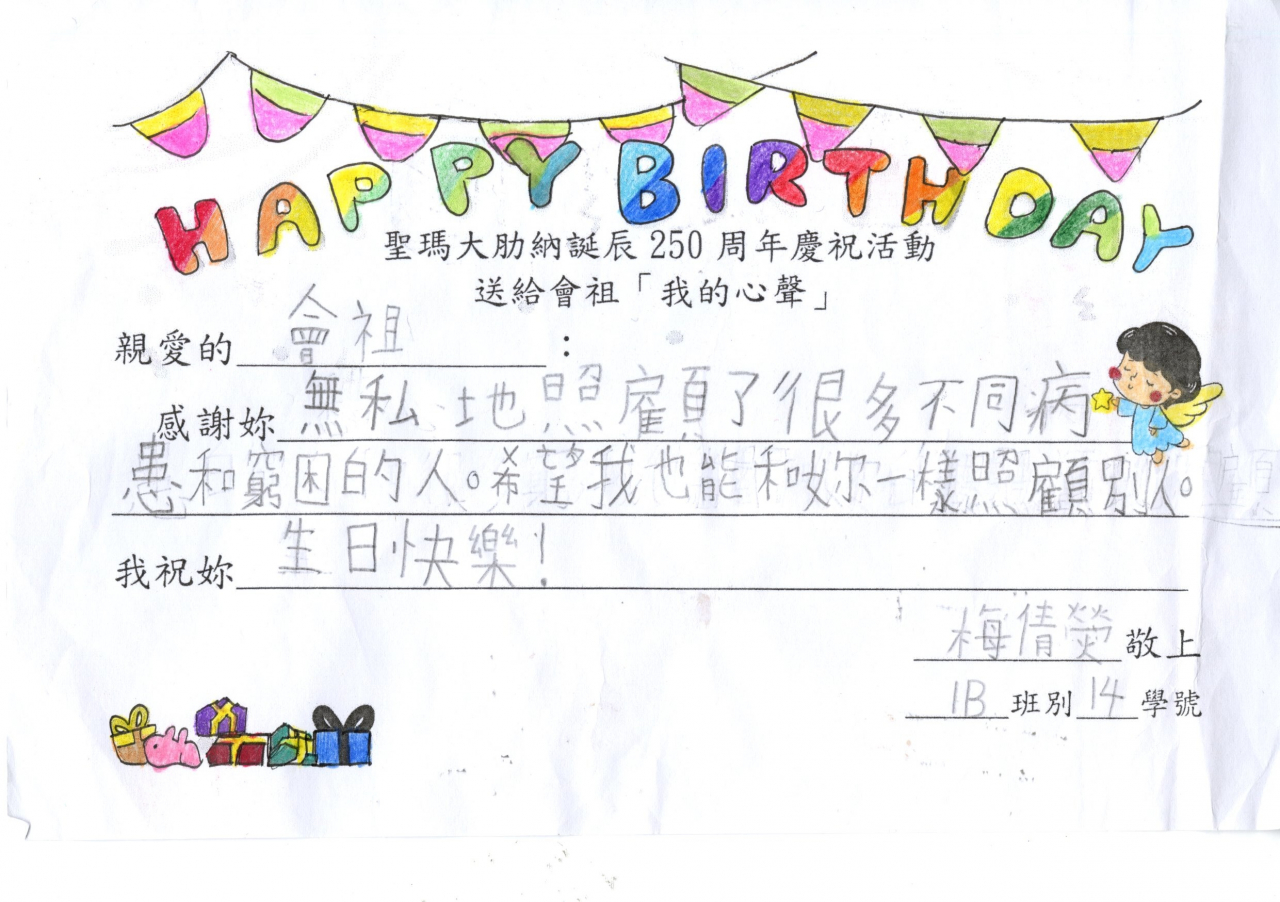 HAPPY BIRTHDAY
聖瑪大肋納誕辰 250 周年慶祝活動
送給會祖「我的心聲」
親愛的 會祖 :
感謝妳 無私地照顧了很多不同病
患和窮困的人。希望我也能和妳一樣照顧別人。
我祝妳 生日快樂!
梅倩熒 敬上
1B 班別 14 學號